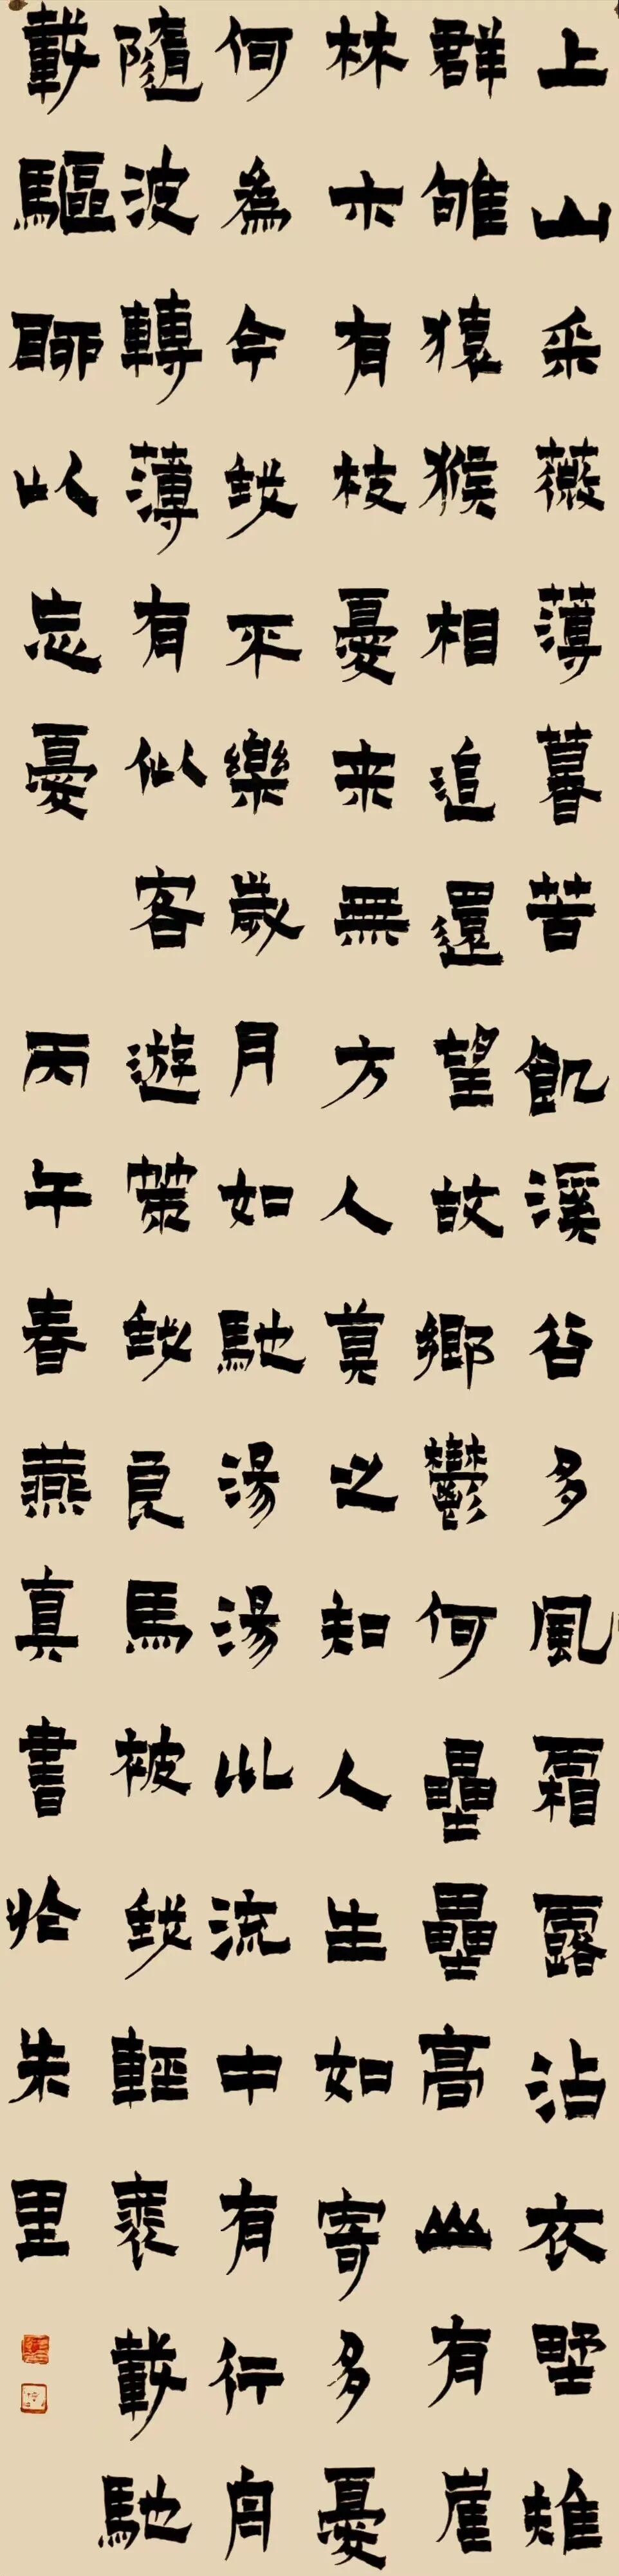 上山采薇薄暮苦飢溪谷多風霜露沾衣野雉
群雊猿猴相追還望故鄉鬱何壘壘高山有崖
林木有枝憂来無方人莫之知人生如寄多憂
何為今我不樂歲月如馳湯湯此流中有行舟
隨波轉薄有似客遊策我良馬被我輕裘載馳
載驅聊以忘憂
丙午春燕真書於朱里